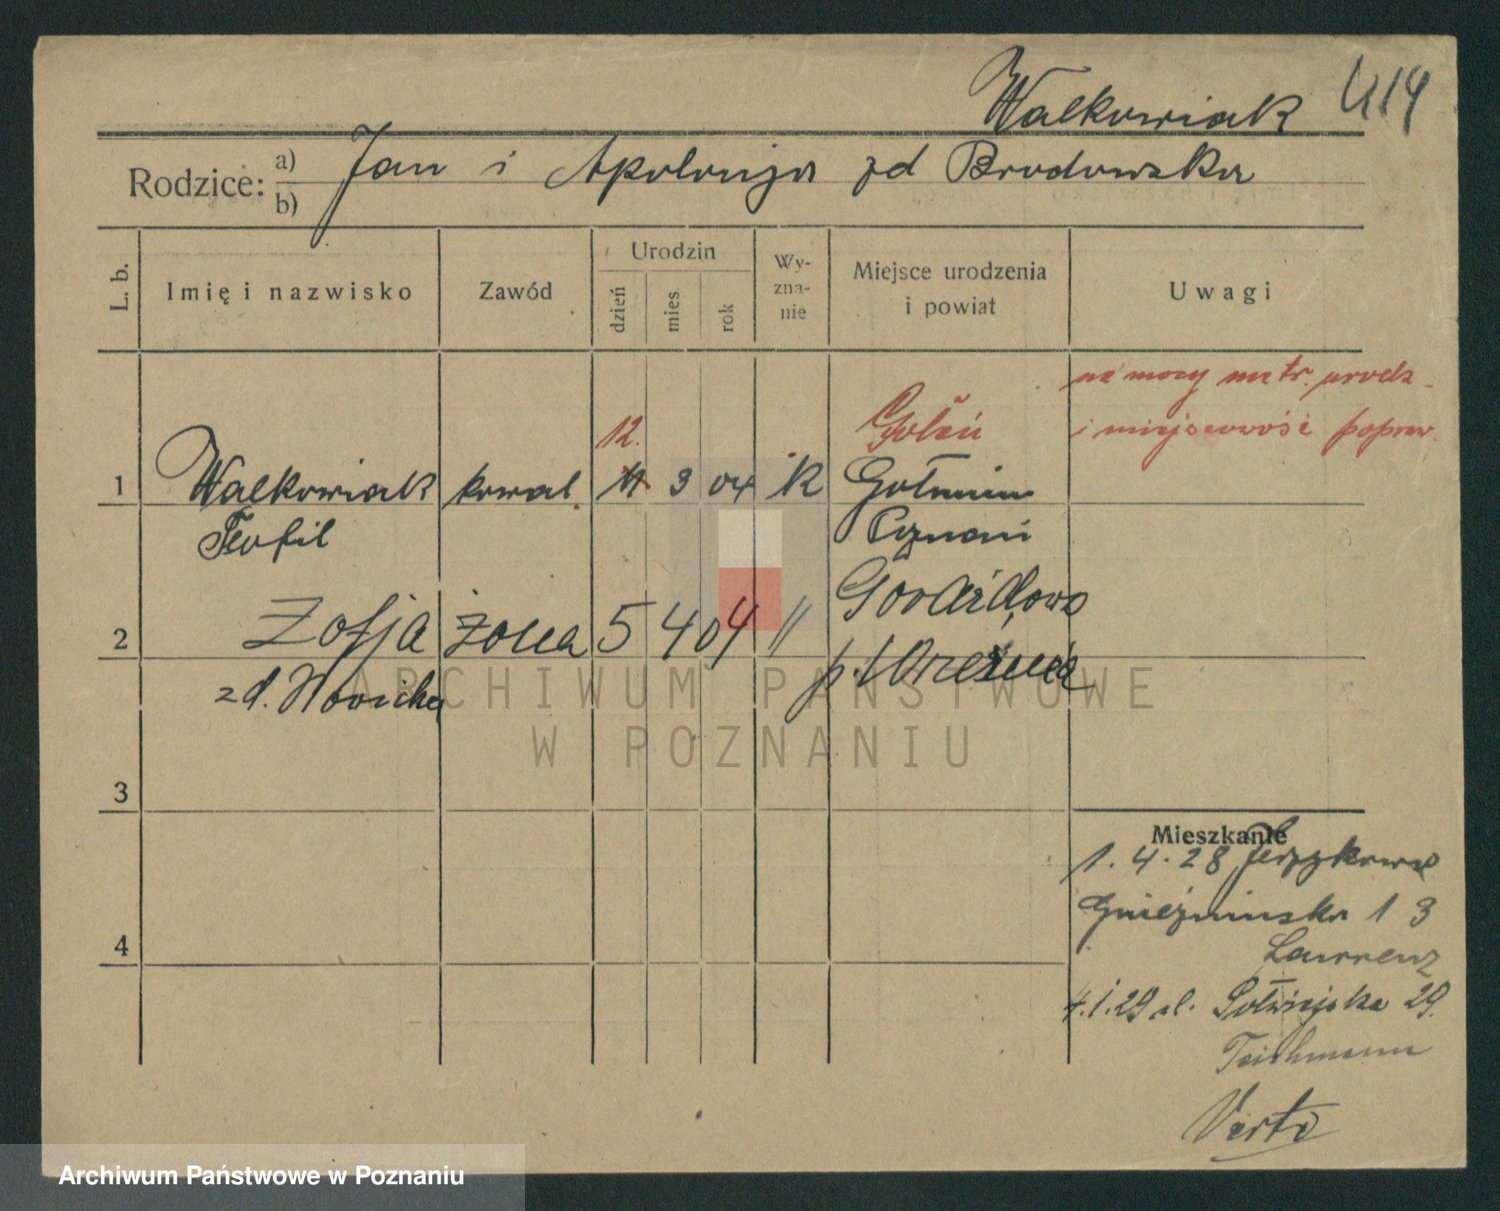 Walkowiak 414
Rodzice: a) b) Jan i Apolonja zd Brodowska
L. b. Imię i nazwisko Zawód Urodzin dzień mies. rok Wy-zna-nie Miejsce urodzenia i powiat Uwagi
na mocy metr. urodz.
12. Goleń i miejscowość popraw.
1 Walkowiak kowal 11 3 04 rk
Teofil Poznań
2 Zofja żona 5 4 04 "
zd. Nowicka p. Września
ARCHIWUM PAŃSTWOWE
W POZNANIU
3
Mieszkanie
1.4.28 Jerzykowo
Gnieźnieńska 13
4
Laurenz
4.1.29 29.
Teichmann
Verte
Archiwum Państwowe w Poznaniu